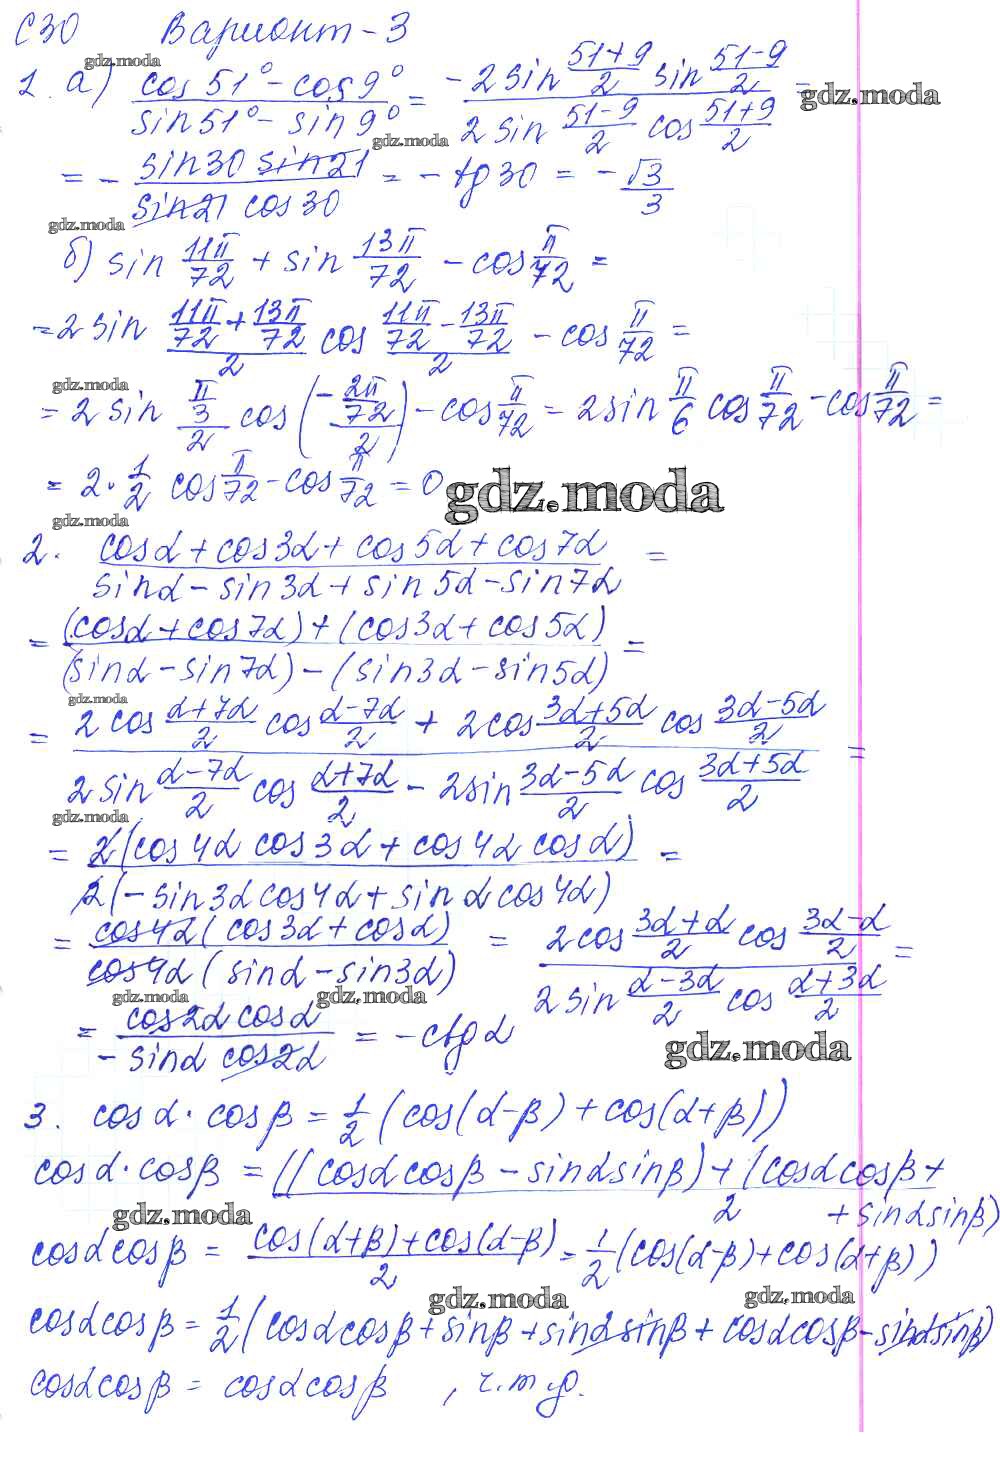 С30 Вариант-3
gdz.moda
1. а) (cos 51° - cos 9°)/(sin 51° - sin 9°) = (-2 sin (51+9)/2 sin (51-9)/2)/(2 sin (51-9)/2 cos (51+9)/2) =
gdz.moda
gdz.moda
= - (sin 30 sin 21)/(sin 21 cos 30) = - tg 30 = - √3/3
gdz.moda
б) sin 11π/72 + sin 13π/72 - cos π/72 =
= 2 sin (11π/72 + 13π/72)/2 cos (11π/72 - 13π/72)/2 - cos π/72 =
gdz.moda
= 2 sin (π/3)/2 cos ((-2π/72)/2) - cos π/72 = 2 sin π/6 cos π/72 - cos π/72 =
= 2 · 1/2 cos π/72 - cos π/72 = 0
gdz.moda
gdz.moda
2. (cos α + cos 3α + cos 5α + cos 7α)/(sin α - sin 3α + sin 5α - sin 7α) =
= ((cos α + cos 7α) + (cos 3α + cos 5α))/((sin α - sin 7α) - (sin 3α - sin 5α)) =
gdz.moda
= (2 cos (α+7α)/2 cos (α-7α)/2 + 2 cos (3α+5α)/2 cos (3α-5α)/2)/(2 sin (α-7α)/2 cos (α+7α)/2 - 2 sin (3α-5α)/2 cos (3α+5α)/2) =
gdz.moda
= 2(cos 4α cos 3α + cos 4α cos α)/2(- sin 3α cos 4α + sin α cos 4α) =
= cos 4α (cos 3α + cos α)/cos 4α (sin α - sin 3α) = (2 cos (3α+α)/2 cos (3α-α)/2)/(2 sin (α-3α)/2 cos (α+3α)/2) =
gdz.moda gdz.moda
= (cos 2α cos α)/(- sin α cos 2α) = - ctg α
gdz.moda
3. cos α · cos β = 1/2 (cos(α-β) + cos(α+β))
cos α · cos β = ((cos α cos β - sin α sin β) + (cos α cos β +
+ sin α sin β)/2
gdz.moda
cos α cos β = (cos(α+β) + cos(α-β))/2 = 1/2 (cos(α-β) + cos(α+β))
gdz.moda gdz.moda
cos α cos β = 1/2 (cos α cos β + sin β + sin α sin β + cos α cos β - sin α sin β)
cos α cos β = cos α cos β , ч.т.д.